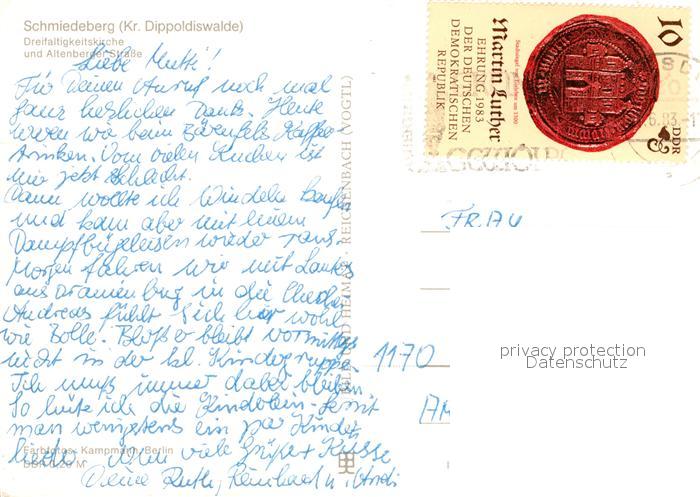 Schmiedeberg (Kr. Dippoldiswalde)
Dreifaltigkeitskirche
und Altenberger Straße
Liebe Mutti!
Für Deinen Anruf noch mal
ganz herzlichen Dank. Heute
waren wir beim Bärenfels Kaffee
trinken. Vom vielen Kuchen ist
mir jetzt schlecht.
Dann wollte ich Windeln kaufen
und kam aber mit einem
Dampfbügeleisen wieder raus.
Morgen fahren wir mit Leuten
aus Oranienburg in die
Andreas fühlt sich hier wohl
wie Bolle. Bloß er bleibt vormittags
nicht in der kl. Kindergruppe.
Ich muß immer dabei bleiben.
So hüte ich die Kinderlein - lernt
man wenigstens ein paar Kinder-
lieder. Nun viele Grüße + Küsse
Deine Ruth, Reinhard u. Andi
Farbfotos: Kampmann, Berlin
DDR 0,20 M
BILD UND HEIMAT REICHENBACH (VOGTL)
Martin Luther
EHRUNG 1983
DER DEUTSCHEN
DEMOKRATISCHEN
REPUBLIK
10
DDR
FRAU
1170
privacy protection
Datenschutz